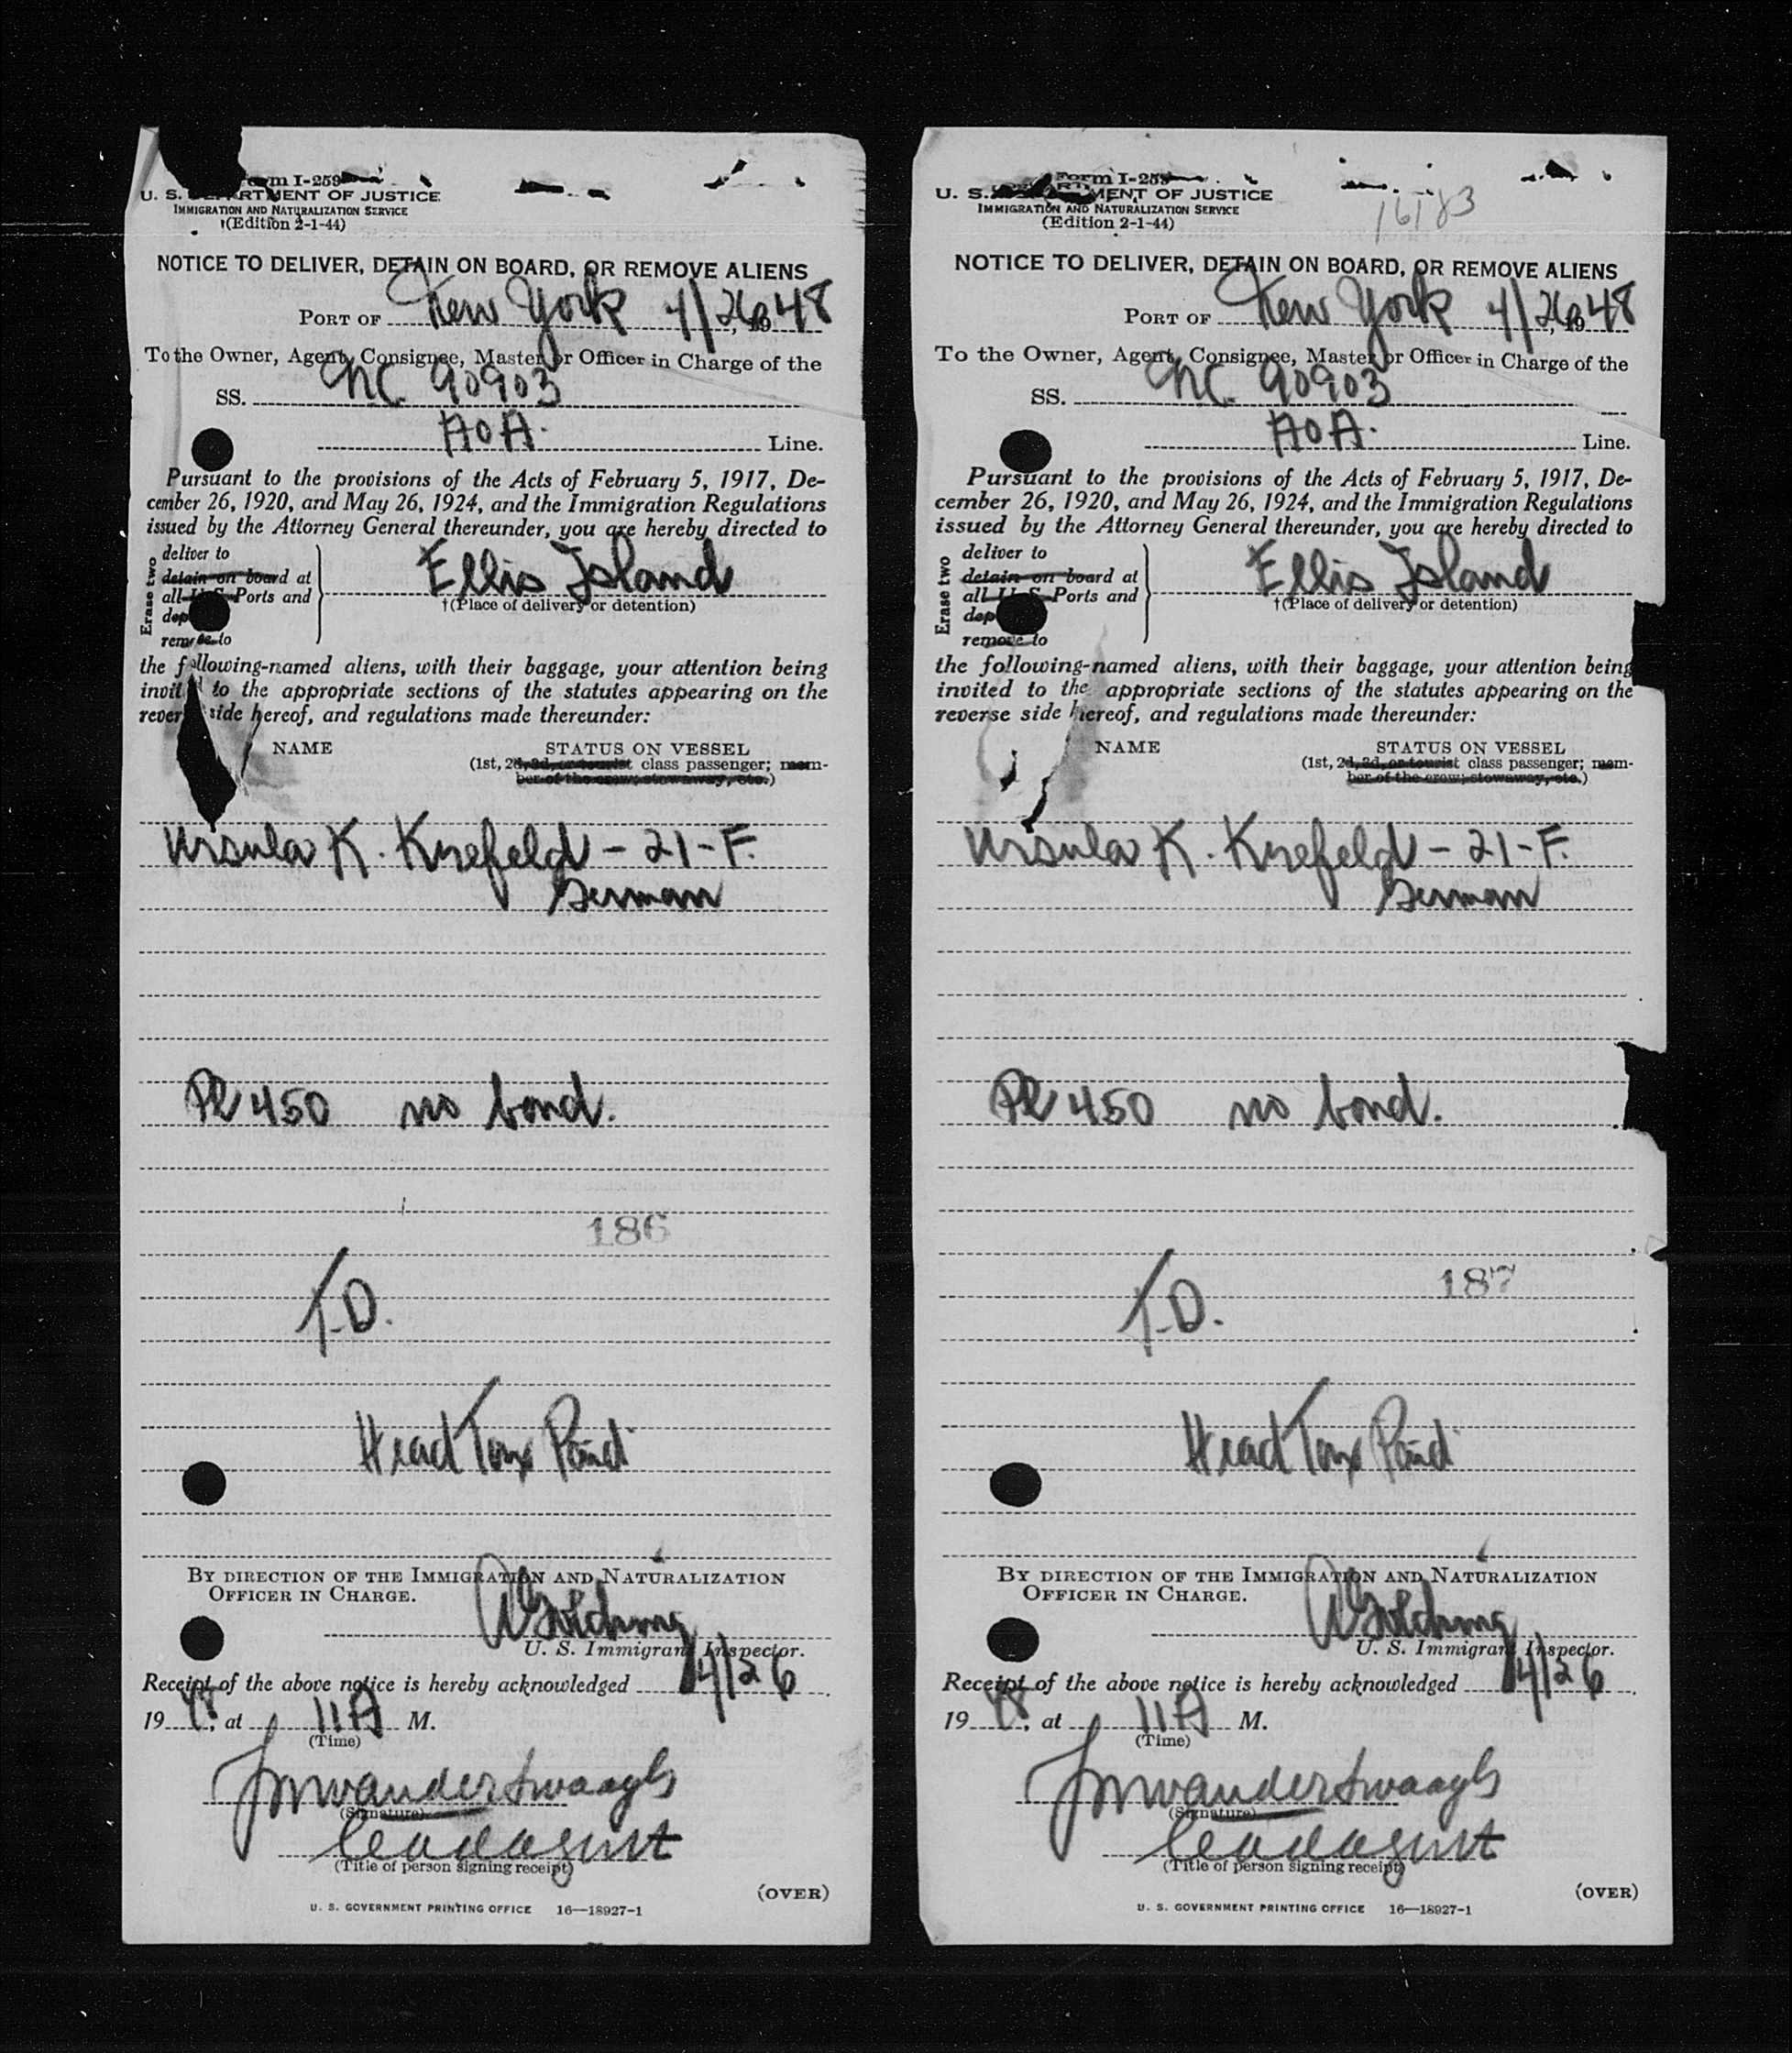 Form I-259
U. S. DEPARTMENT OF JUSTICE
IMMIGRATION AND NATURALIZATION SERVICE
(Edition 2-1-44)
NOTICE TO DELIVER, DETAIN ON BOARD, OR REMOVE ALIENS
PORT OF New York 4/26, 1948
To the Owner, Agent, Consignee, Master or Officer in Charge of the
SS. NC. 90903
AOA. Line.
Pursuant to the provisions of the Acts of February 5, 1917, De-
cember 26, 1920, and May 26, 1924, and the Immigration Regulations
issued by the Attorney General thereunder, you are hereby directed to
Erase two
deliver to
detain on board at
all U. S. Ports and
dep
remove to
Ellis Island
†(Place of delivery or detention)
the following-named aliens, with their baggage, your attention being
invited to the appropriate sections of the statutes appearing on the
reverse side hereof, and regulations made thereunder:
NAME STATUS ON VESSEL
(1st, 2d, 3d, or tourist class passenger; mem-
ber of the crew; stowaway, etc.)
Ursula K. Krefeld - 21 - F.
German
PL 450 no bond.
186
T.D.
Head Tax Paid
BY DIRECTION OF THE IMMIGRATION AND NATURALIZATION
OFFICER IN CHARGE.
U. S. Immigrant Inspector.
Receipt of the above notice is hereby acknowledged 4/26
1948, at 11 A M.
(Time)
(Signature)
Leadagent
(Title of person signing receipt)
(OVER)
U. S. GOVERNMENT PRINTING OFFICE 16—18927-1
Form I-259
U. S. DEPARTMENT OF JUSTICE
IMMIGRATION AND NATURALIZATION SERVICE
(Edition 2-1-44)
NOTICE TO DELIVER, DETAIN ON BOARD, OR REMOVE ALIENS
PORT OF New York 4/26, 1948
To the Owner, Agent, Consignee, Master or Officer in Charge of the
SS. NC. 90903
AOA. Line.
Pursuant to the provisions of the Acts of February 5, 1917, De-
cember 26, 1920, and May 26, 1924, and the Immigration Regulations
issued by the Attorney General thereunder, you are hereby directed to
Erase two
deliver to
detain on board at
all U. S. Ports and
dep
remove to
Ellis Island
†(Place of delivery or detention)
the following-named aliens, with their baggage, your attention being
invited to the appropriate sections of the statutes appearing on the
reverse side hereof, and regulations made thereunder:
NAME STATUS ON VESSEL
(1st, 2d, 3d, or tourist class passenger; mem-
ber of the crew; stowaway, etc.)
Ursula K. Krefeld - 21 - F.
German
PL 450 no bond.
187
T.D.
Head Tax Paid
BY DIRECTION OF THE IMMIGRATION AND NATURALIZATION
OFFICER IN CHARGE.
U. S. Immigrant Inspector.
Receipt of the above notice is hereby acknowledged 4/26
1948, at 11 A M.
(Time)
(Signature)
Leadagent
(Title of person signing receipt)
(OVER)
U. S. GOVERNMENT PRINTING OFFICE 16—18927-1